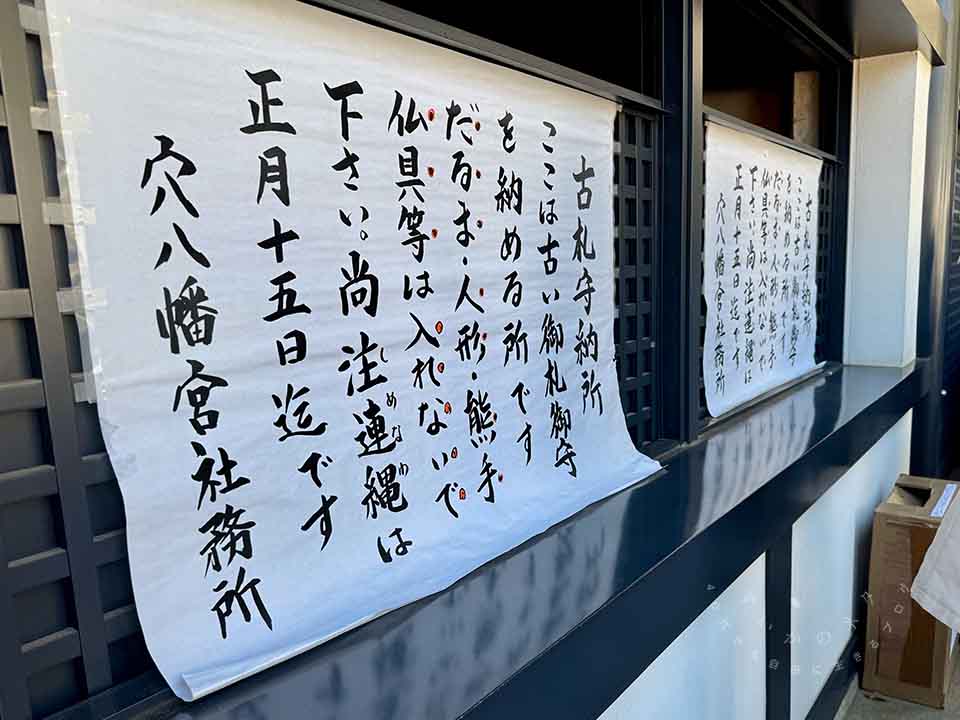 古札守納所
ここは古い御札御守
を納める所です
だるま・人形・熊手
仏具等は入れないで
下さい。尚注連縄は
しめなわ
正月十五日迄です
穴八幡宮社務所
古札守納所
ここは古い御札御守
を納める所です
だるま・人形・熊手
仏具等は入れないで
下さい。尚注連縄は
正月十五日迄です
穴八幡宮社務所